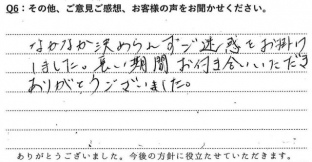 Q6：その他、ご意見ご感想、お客様の声をお聞かせください。
なかなか決められんずご迷惑をお掛け
しました。長い期間お付き合いいただき
ありがとうございました。
ありがとうございました。今後の方針に役立たせていただきます。